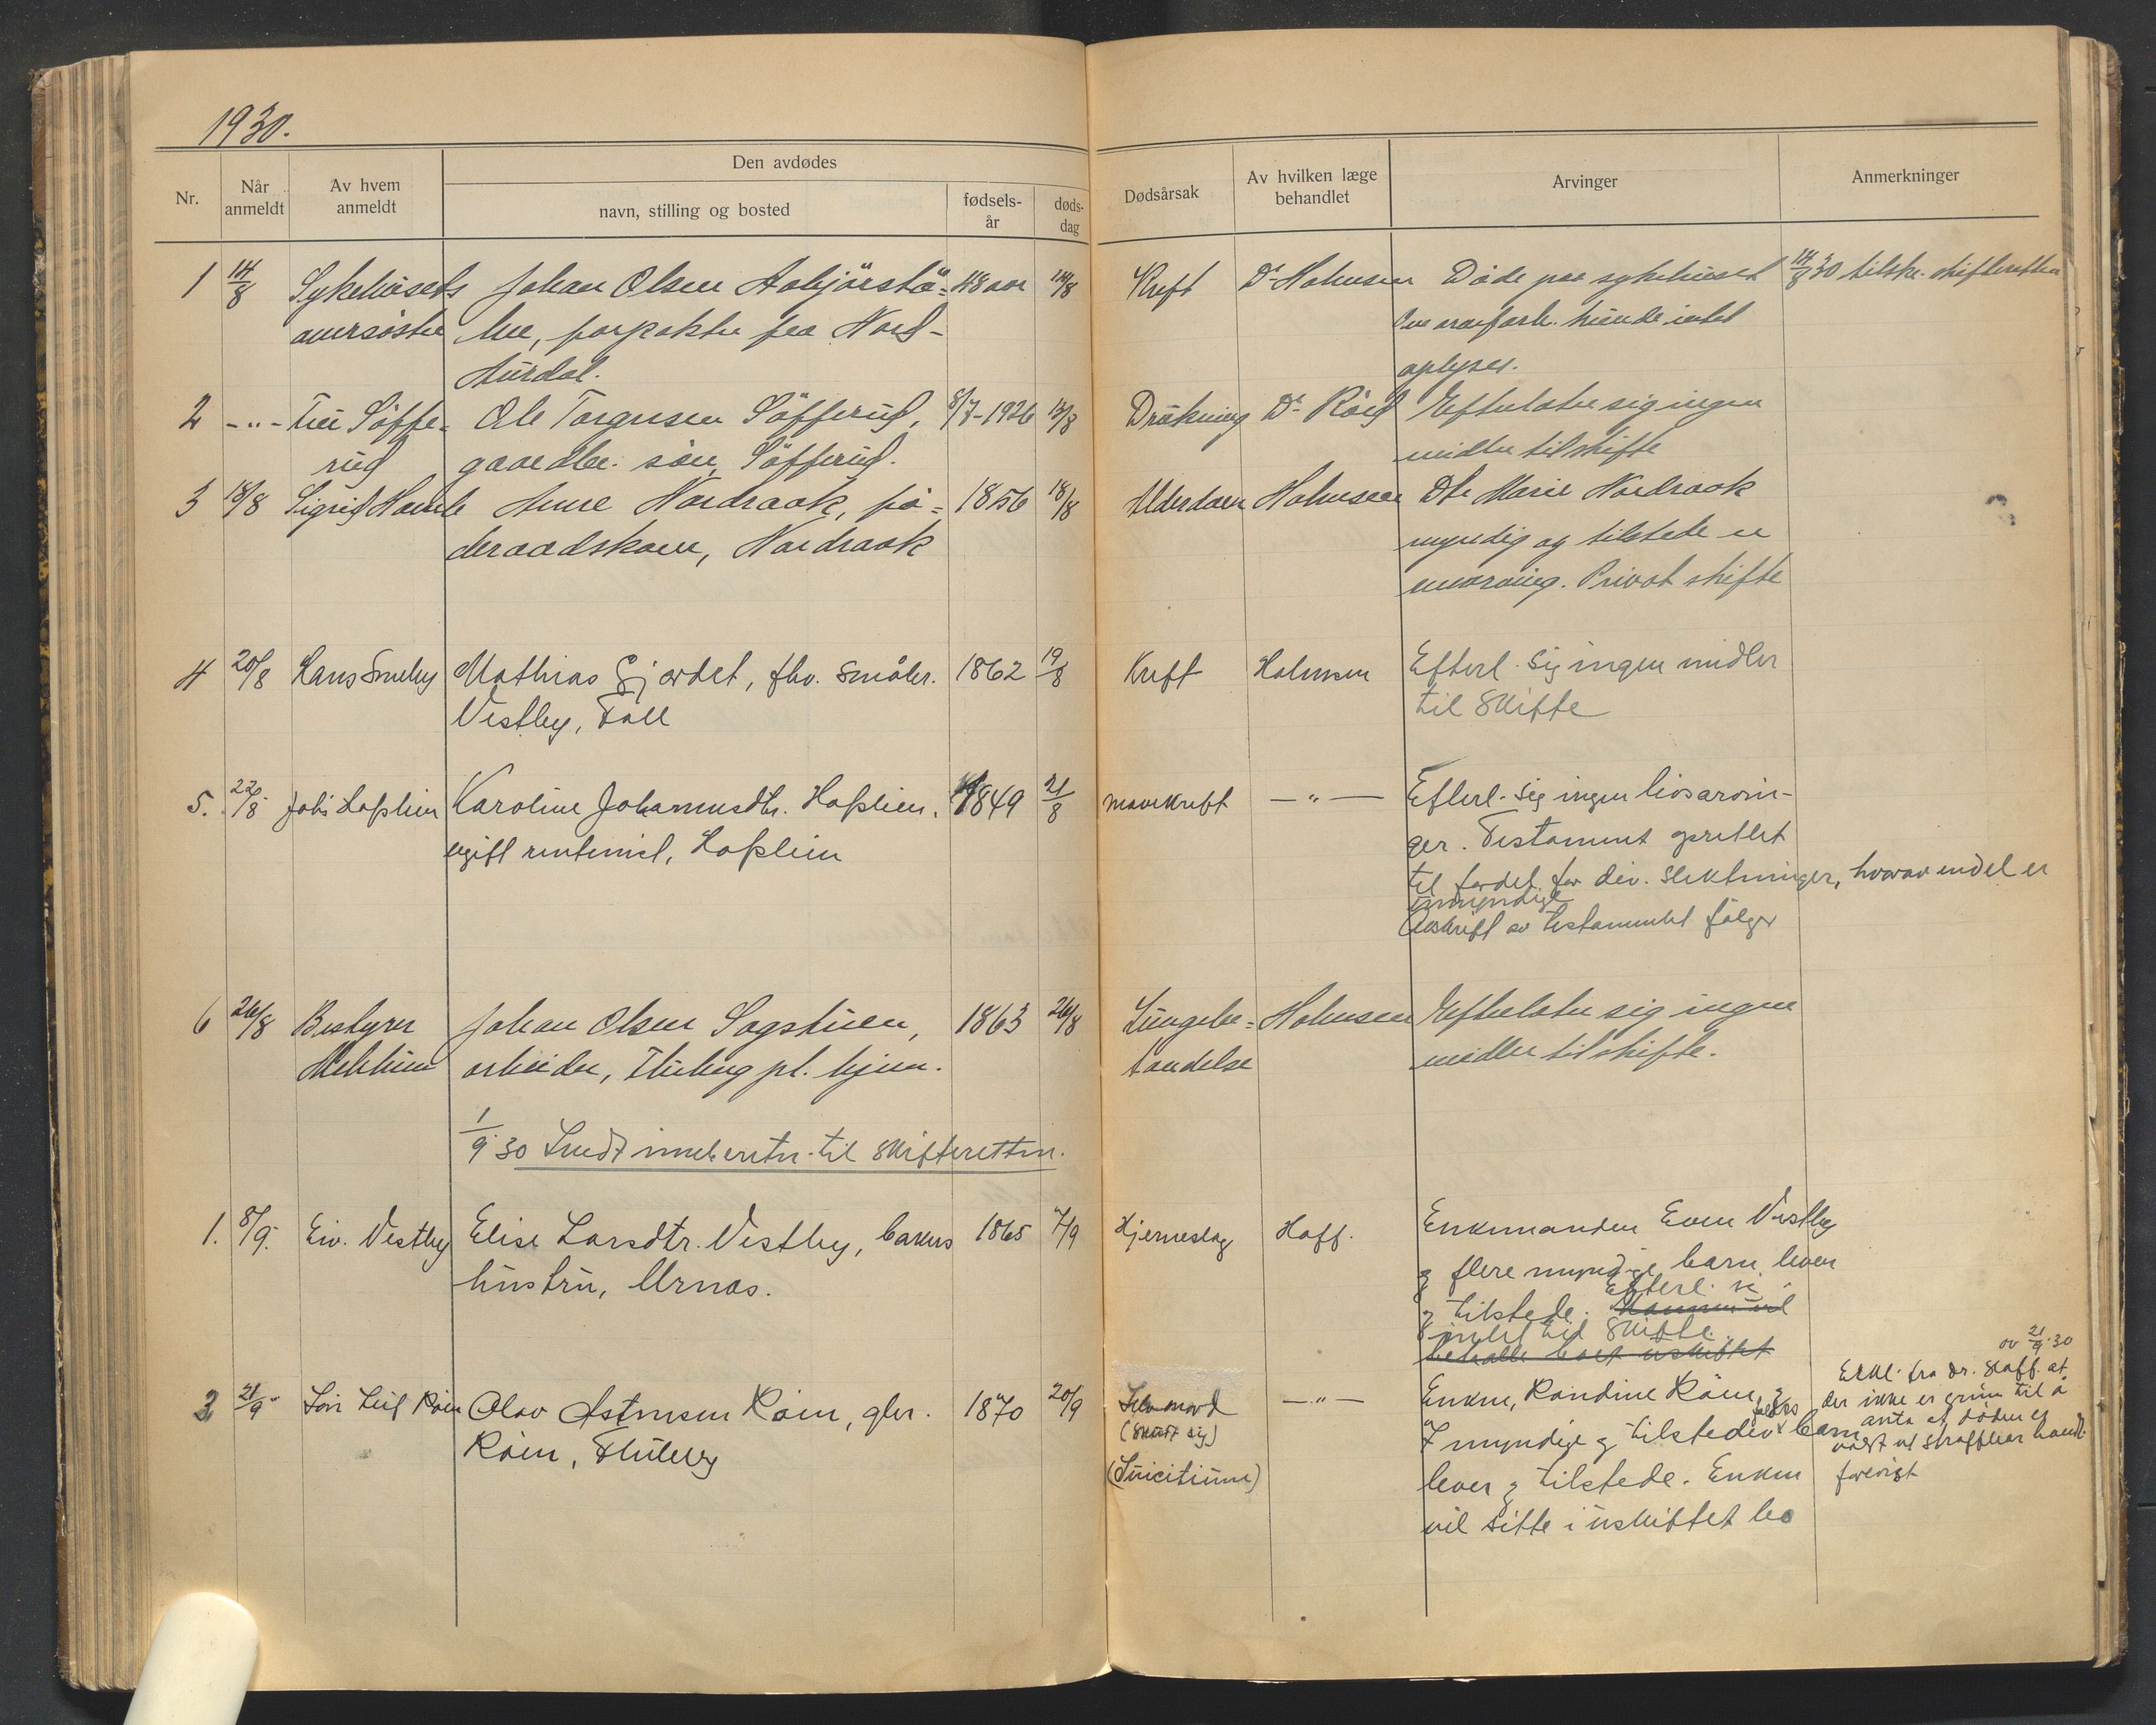 1930.
Nr.
Når anmeldt
Av hvem anmeldt
Den avdødes
navn, stilling og bosted
fødsels-år
døds-dag
Dødsårsak
Av hvilken læge behandlet
Arvinger
Anmerkninger
1 14/8 Sykehusets Johan Olsen 48 aar 14/8 Kreft Dr Holmsen Døde paa sykehuset 14/8 30 tilskr. skifteretten
oversøster forpakter fra Nord- kunde intet
Aurdal. oplyses.
2 -"- Søffe- Ole Torgersen Søfferud, 8/7-1926 13/8 Drukning Dr Efterlater sig ingen
rud gaardbr. søn, Søfferud. midler til skifte
3 18/8 Sigrid Anne Nordraak, fø- 1856 18/8 Alderdom Holmsen Dtr Marie Nordraak
deraadskone, Nordraak myndig og tilstede er
enearving. Privat skifte
4 20/8 Hans Smeby Mathias Gjordet, fhv. småbr. 1862 19/8 Kreft Holmsen Efterl. sig ingen midler
Vestby, Fall til skifte
5. 22/8 Johs Haslien Karoline Johannesdtr. Haslien, 1849 21/8 mavekreft -"- Efterl. sig ingen livsarvin-
ugift rentenist, Haslien ger. Testament oprettet
til fordel for div. slektninger, hvorav endel er
umyndige
Avskrift av testamentet følger
6 26/8 Bestyrer Johan Olsen Sagstuen, 1863 26/8 Lungebe- Holmsen Efterlater sig ingen
arbeider, Fluberg pl. hjem. tændelse midler til skifte.
1/9 30 Sendt innberetn. til skifteretten.
1. 8/9. Eiv. Vestby Elise Larsdtr. Vestby, bakers 1865 7/9 Hjerneslag Hoff. Enkemanden Even Vestby
hustru, Urnes. og flere myndige barn lever
Efterl. sig
og tilstede.
intet til skifte.
beholde boet uskiftet
2 21/9 Leif Røin Olav Astensen Røin, gbr. 1870 20/9 Selvmord -"- Enken, Randine Røin, og
Røin, Fluberg (skutt sig) 7 myndige og tilstedev. barn
(Suicitium) lever og tilstede. Enken
vil sitte i uskiftet bo
av 21/9.30
Erkl. fra dr. Hoff. at
der ikke er grunn til å
anta at døden er
voldt ved straffbar handl.
forevist